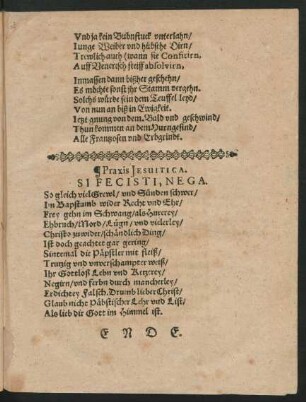 Vnd ja kein Bubnstuck vnterlahn/
Junge Weiber vnd hübsche Dirn/
Trewlich auch (wann sie Confitirn,
Auff Venerisch steiff absolvirn,
Inmassen dann bißher geschehn/
Es möcht sonst ihr Stamm vergehn.
Solchs würde sein dem Teuffel leyd/
Von nun an biß in Ewigkeit.
Jetzt gnung von dem, Bald vnd geschwind/
Thun kommen an dem Hurengesind/
Alle Frantzosen vnd Erbgrindt.
¶ Praxis JESUITICA.
SI FECISTI, NEGA.
So gleich viel Grewl/ vnd Sünden schwer/
In Bapstumb wider Recht vnd Ehr/
Frey gehn im Schwang/ als Hurerey/
Ehbruch/ Mord/ Lügn/ vnd vielerley/
Christo zuwider/ schändlich Ding/
Ist doch geachtet gar gering/
Sintemal die Päpstler mit fleiß/
Trutzig vnd vnverschampter weiß/
Ihr Gottloß Lebn vnd Ketzerey/
Negirn/ vnd färbn durch mancherley/
Erdichtet Falsch. Drumb lieber Christ/
Glaub nicht Päbstischer Lehr vnd List/
Als lieb dir Gott im Himmel ist.
E N D E.